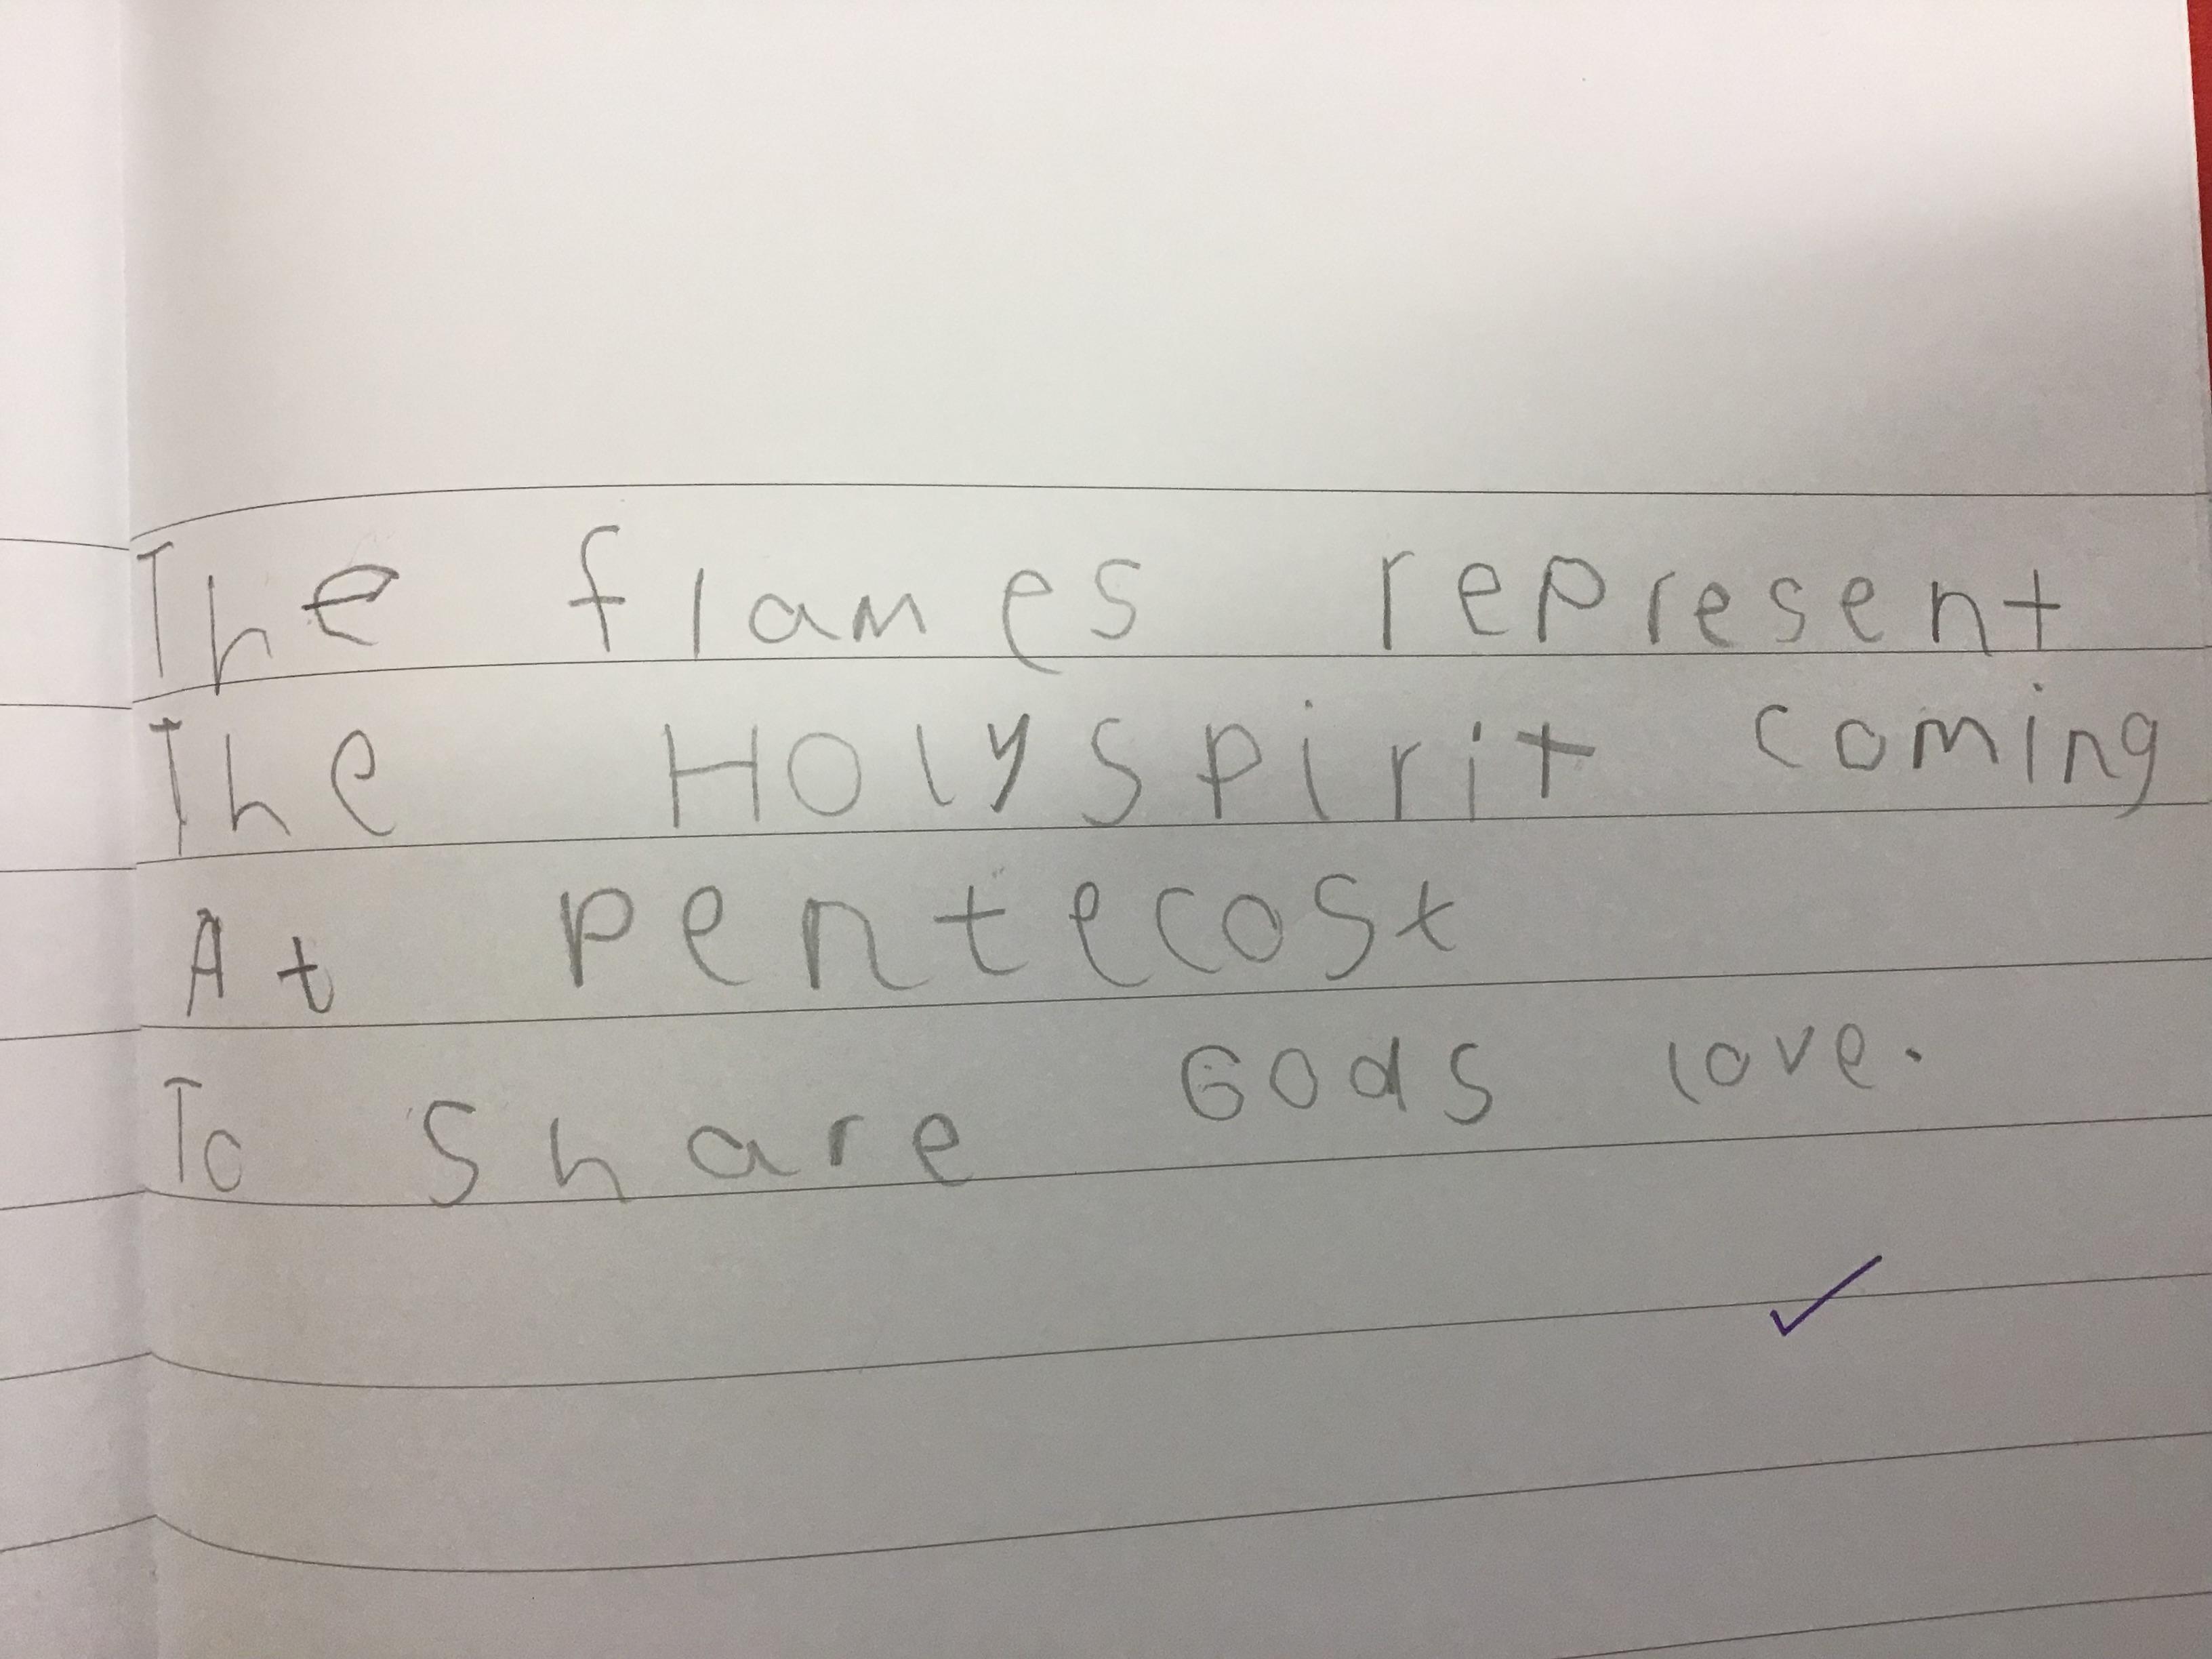 The flames represent
The HOly spirit coming
At pentecost
To share Gods love.